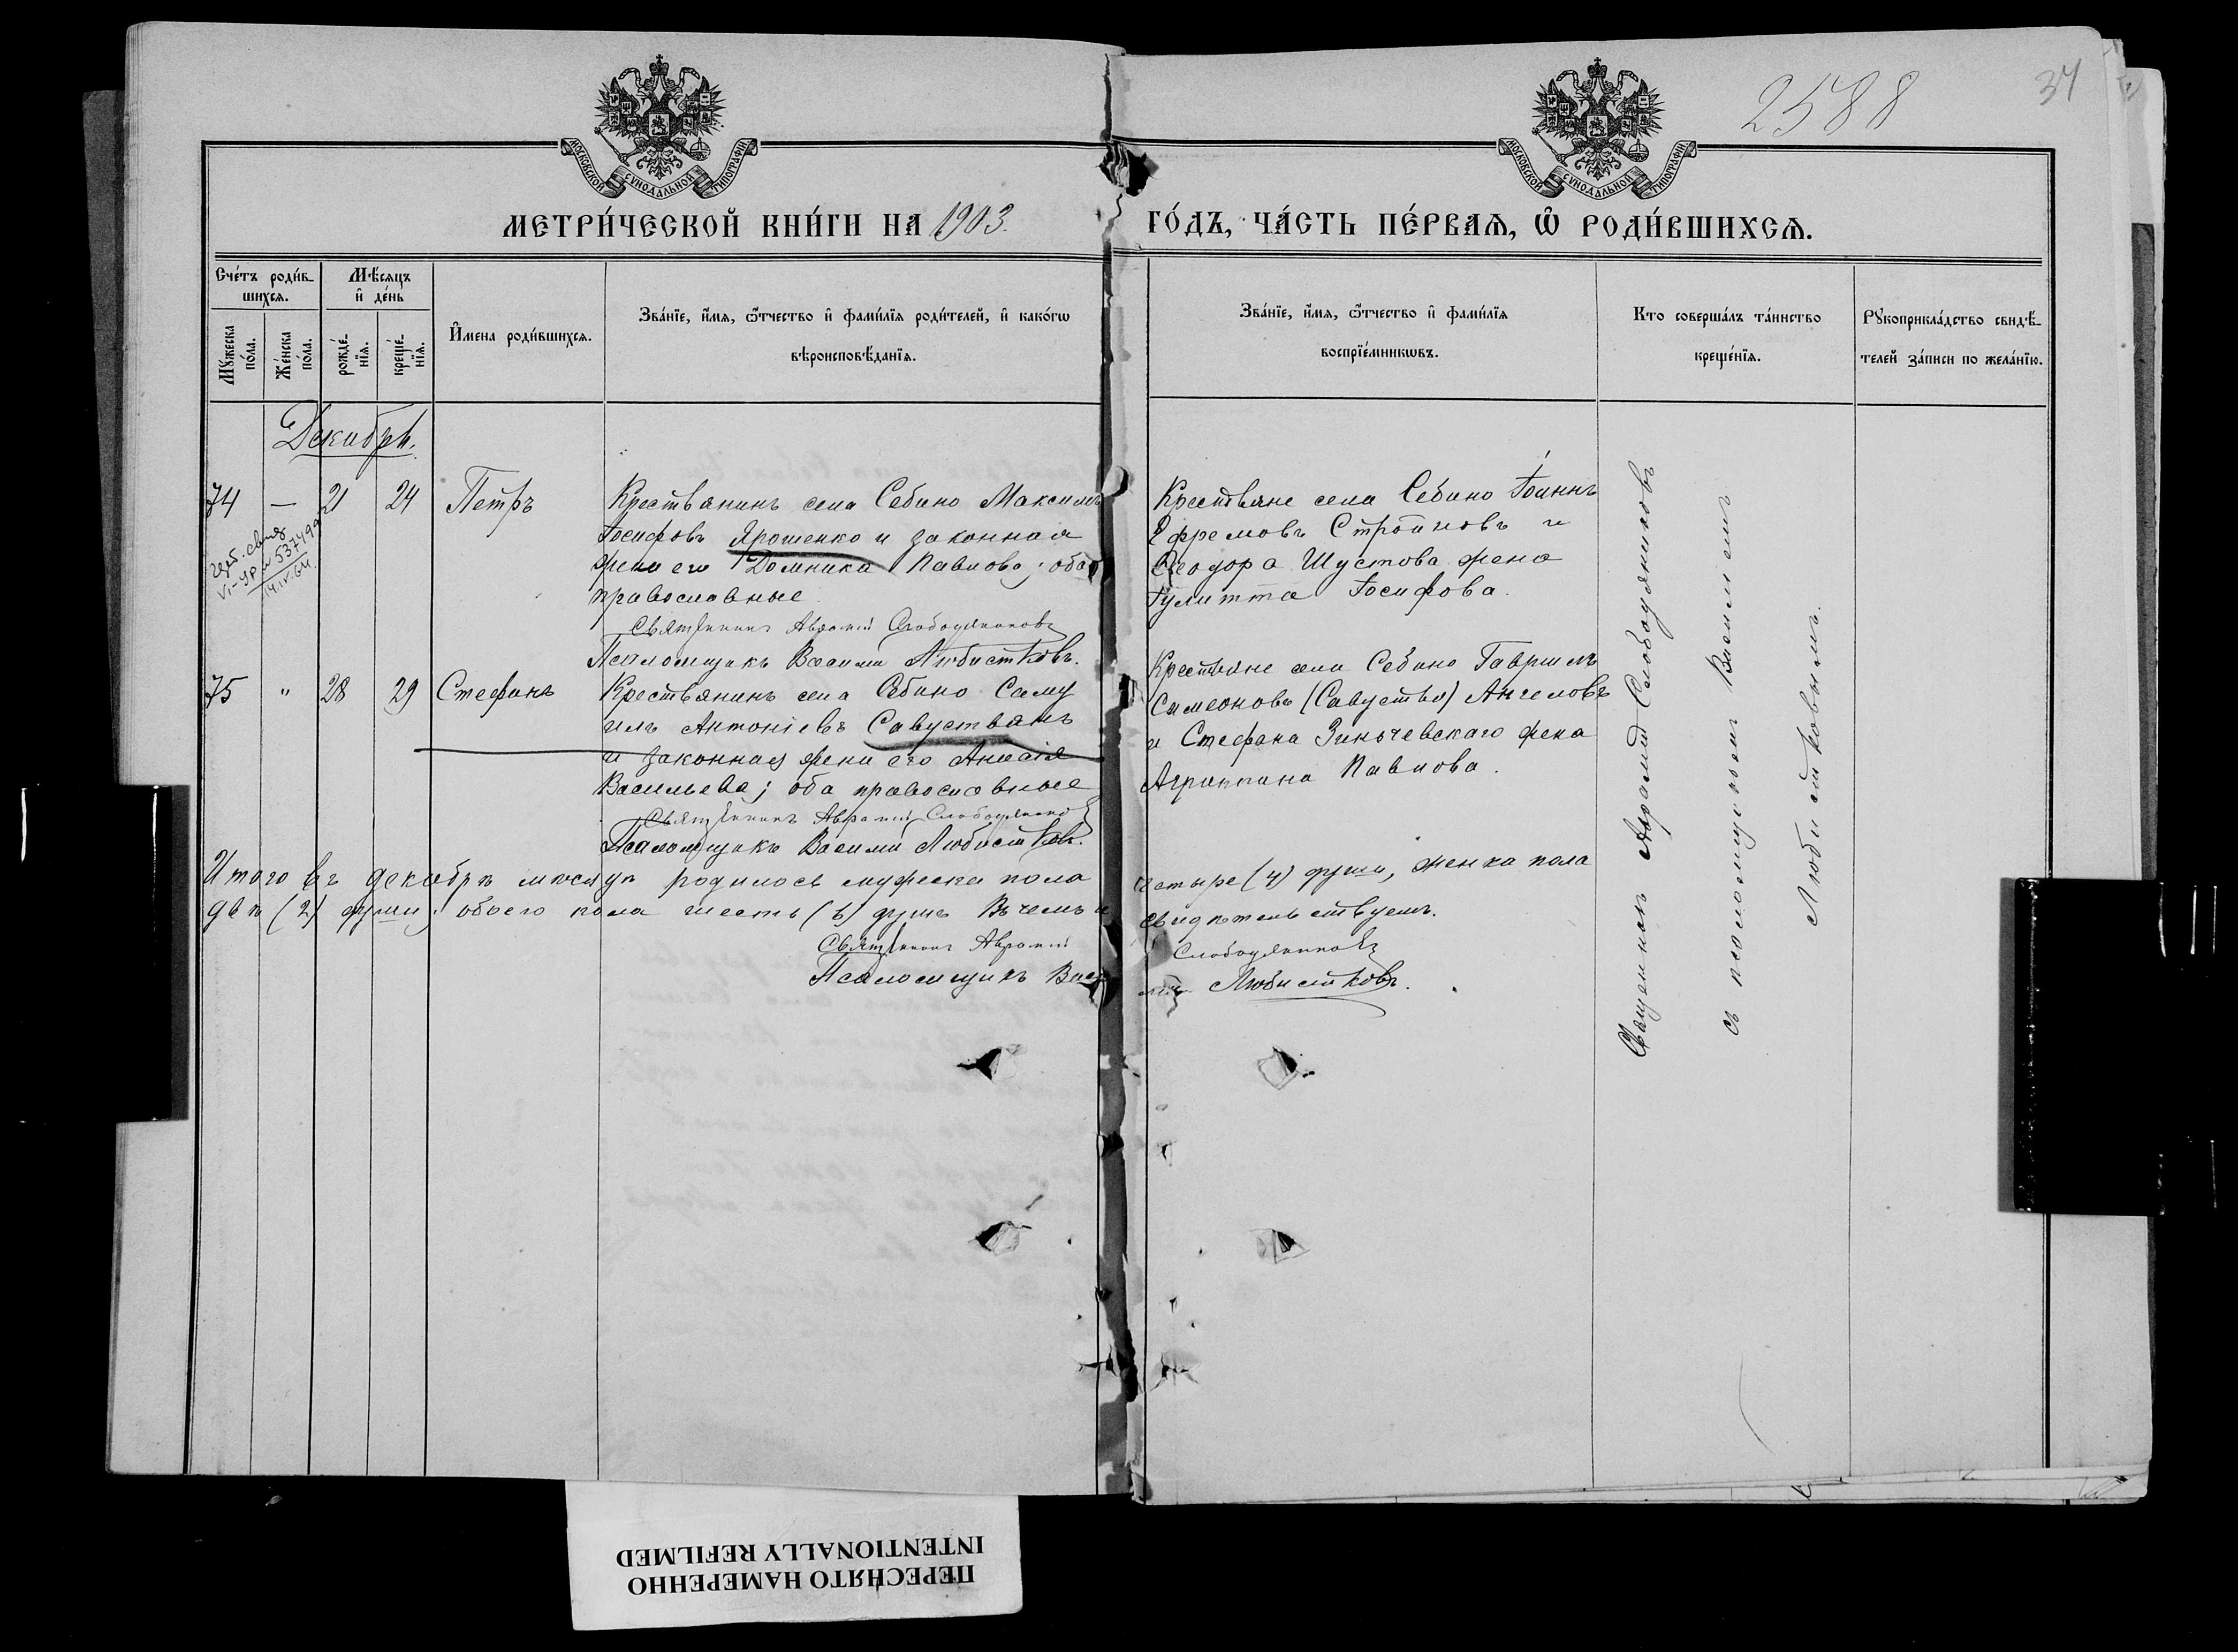 2588
34
МОСКОВСКОЙ СѴНОДАЛЬНОЙ ТИПОГРАФІИ
МОСКОВСКОЙ СѴНОДАЛЬНОЙ ТИПОГРАФІИ
МЕТРИ́ЧЕСКОЙ КНИ́ГИ НА 1903.
ГО́ДЪ, ЧА́СТЬ ПЕ́РВАѦ, Ѽ РОДИ́ВШИХСѦ.
Сче́тъ роди́в-
шихсѧ.
Мꙋжеска по́ла.
Же́нска по́ла.
Мѣ́сѧцъ
и҆ де́нь
рожде́-
нїѧ.
креще́-
нїѧ.
И҆мена роди́вшихсѧ.
Зва́нїе, и҆́мѧ, ѻ҆́тчество и҆ фами́лїѧ роди́телей, и҆ како́гѡ
вѣроисповѣ́данїѧ.
Зва́нїе, и҆́мѧ, ѻ҆́тчество и҆ фами́лїѧ
воспрїе́мникѡвъ.
Кто соверша́лъ та́инство
креще́нїѧ.
Рꙋкоприкла́дство свидѣ́-
телей за́писи по жела́нїю.
Декабрь.
74 — 21 24 Петръ
Крестьянинъ села Себино Максимъ
Іосифовъ Ярошенко и законная
жена его Домника Павлова; оба
православные
Священникъ Аврамій Слободяниковъ
Псаломщикъ Василий Любистковъ.
Крестьяне села Себино Іоаннъ
Ефремовъ Стройновъ и
Ѳеодора Шустова жена
Іулитта Іосифова.
75 " 28 29 Стефанъ
Крестьянинъ села Себино Саму
илъ Антоніевъ Савуствянъ
и законная жена его Анисія
Васильева; оба православные
Священникъ Аврамій Слободяниковъ
Псаломщикъ Василий Любистковъ.
Крестьяне села Себино Гавриилъ
Симеоновъ (Савуствя) Ангеловъ
и Стефана Зиньчевскаго жена
Агриппина Павлова.
Священникъ Аврамій Слободяниковъ
съ псаломщикомъ Василиемъ
Любистковымъ.
Итого въ декабрѣ мѣсяцѣ родилось мужеска пола четыре (4) души, женска пола
двѣ (2) души; обоего пола шесть (6) душъ. Въ чемъ и свидѣтельствуемъ.
Священникъ Аврамій Слободяниковъ
Псаломщикъ Василий Любистковъ.
ПЕРЕСНЯТО НАМЕРЕННО
INTENTIONALLY REFILMED